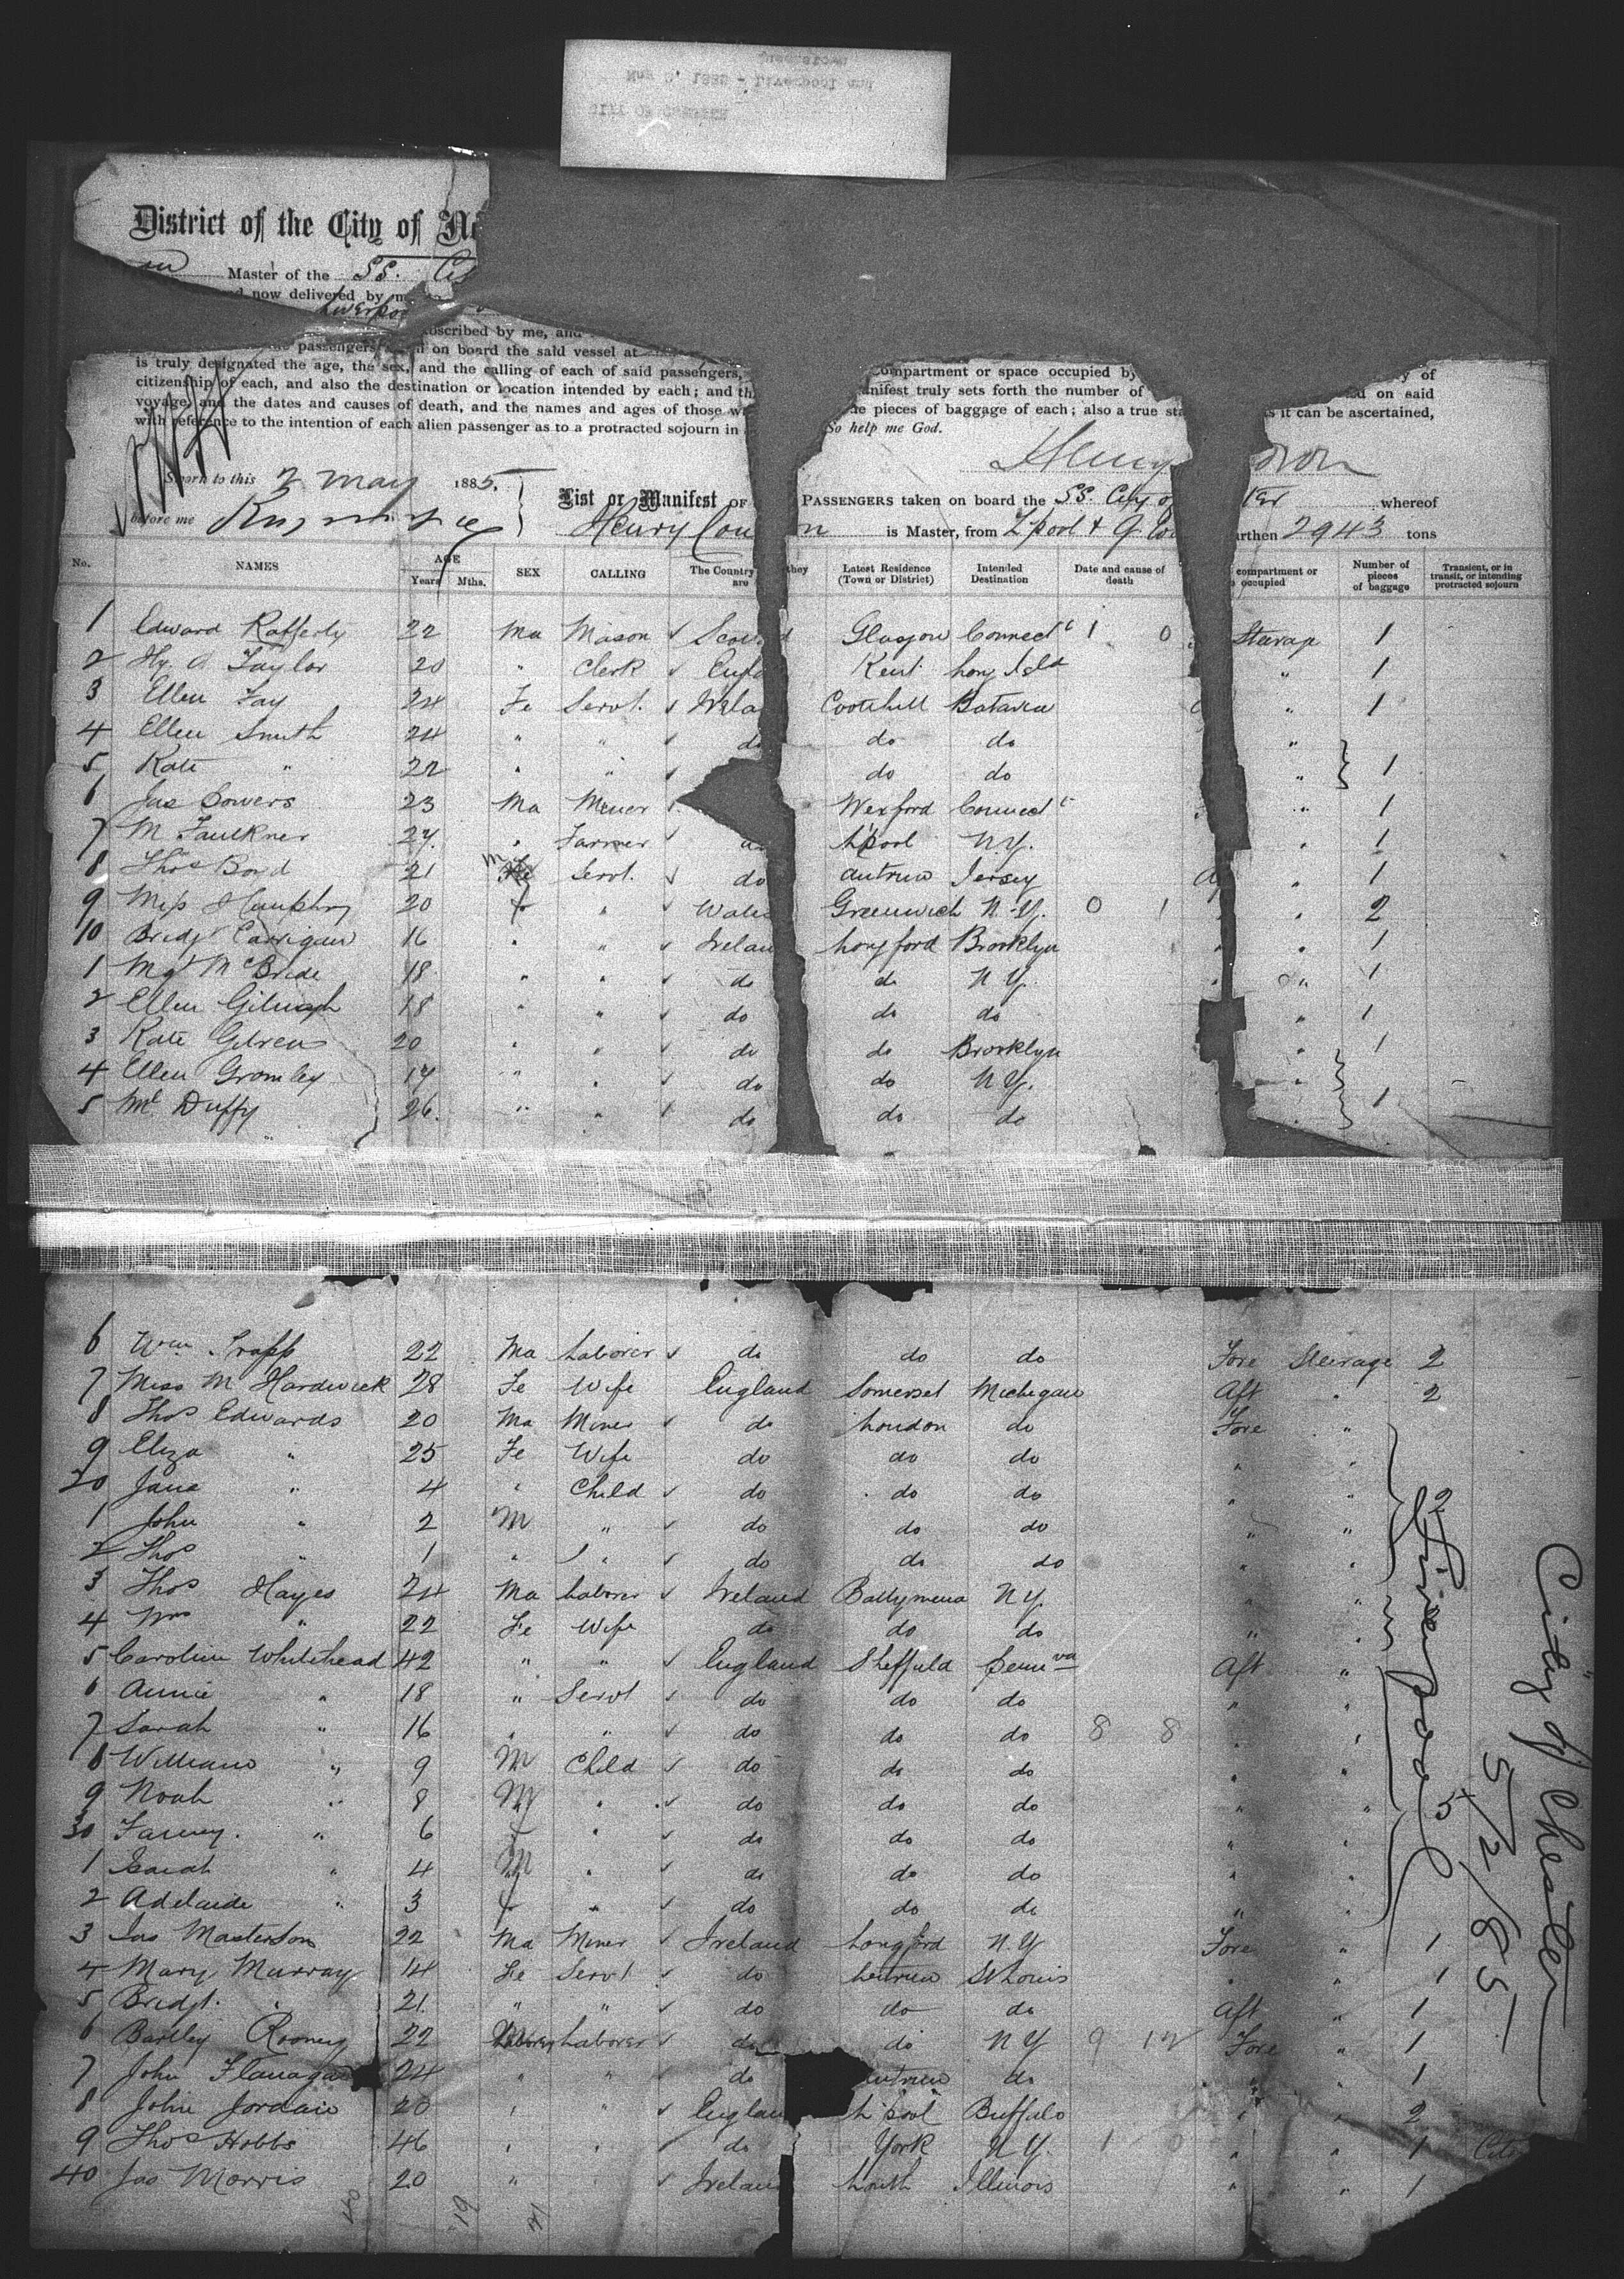 District of the City of Ne
Master of the SS. Cit
now delivered by m
Liverpoo
bscribed by me, and
passengers on board the said vessel at
is truly designated the age, the sex, and the calling of each of said passengers, compartment or space occupied by y of
citizenship of each, and also the destination or location intended by each; and th anifest truly sets forth the number of d on said
voyage, and the dates and causes of death, and the names and ages of those w e pieces of baggage of each; also a true sta s it can be ascertained,
with reference to the intention of each alien passenger as to a protracted sojourn in So help me God.
Henry on
Sworn to this 2 May 1885.
before me
List or Manifest of PASSENGERS taken on board the SS. City of ter whereof
Henry Con n is Master, from L'pool & Q'to urthen 2943 tons
No. NAMES AGE Years Mths. SEX CALLING The Country they are Latest Residence (Town or District) Intended Destination Date and cause of death compartment or s occupied Number of pieces of baggage Transient, or in transit, or intending protracted sojourn
1 Edward Rafferty 22 Ma Mason Scot d Glasgow Connect 1 0 Steerage 1
2 Hy. Taylor 20 " Clerk Engl Kent Long Isld " 1
3 Ellen Fay 24 Fe Servt. Irela Cootehill Batavia " 1
4 Ellen Smith 24 " " do do do "
5 Kate " 22 " " do do " 1
6 Jas Bowers 23 Ma Miner Wexford Connect " 1
7 M Faulkner 27 " Farmer L'pool N.Y. " 1
8 Thos Boyd 21 M Servt. do Antrim Jersey " 1
9 Miss Humphry 20 f " Wales Greenwich N.Y. 0 1 " 2
10 Bridgt Carrigan 16 " " Irelan Longford Brooklyn " 1
1 Mgt McBride 18 " " do do N.Y. " 1
2 Ellen 18 " " do do do " 1
3 Kate 20 " " do do Brooklyn " 1
4 Ellen Gromley 17 " " do do N.Y. "
5 Duffy 26 " " do do do 1
6 Wm Trapp 22 Ma Laborer do do do Fore Steerage 2
7 Miss M Hardwick 28 Fe Wife England Somerset Michigan Aft " 2
8 Thos Edwards 20 Ma Miner do London do Fore "
9 Eliza " 25 Fe Wife do do do " "
20 Jane " 4 " Child do do do " "
1 John " 2 M " do do do " "
2 Thos " 1 " " do do do " "
3 Thos Hayes 24 Ma Laborer Ireland Ballymena N.Y. " "
4 Mrs " 22 Fe Wife do do do " "
5 Caroline Whitehead 42 " " England Sheffield Pennva Aft "
6 Annie " 18 " Servt do do do " "
7 Sarah " 16 " " do do do 8 8 " "
8 William " 9 M Child do do do " "
9 Noah " 8 M " do do do " "
30 Fanny " 6 f " do do do " "
1 Isaiah " 4 M " do do do " "
2 Adelaide " 3 f " do do do " "
3 Jas Masterson 22 Ma Miner Ireland Longford N.Y Fore " 1
4 Mary Murray 14 Fe Servt do Leitrim St Louis " " 1
5 Bridgt. " 21 " " do do do Aft " 1
6 Bartley Rooney 22 Laborer do do N Y 9 12 Fore " 1
7 John Flanagan 24 " " do do " " 1
8 John Jordain 20 " " Englan L'pool Buffalo " " 2
9 Thos Hobbs 46 " " do York N.Y. 1 0 " " 1
40 Jas Morris 20 " " Irelan Louth Illinois " " 1
2
5
Liverpool
City of Chester
5/2/85
19
21